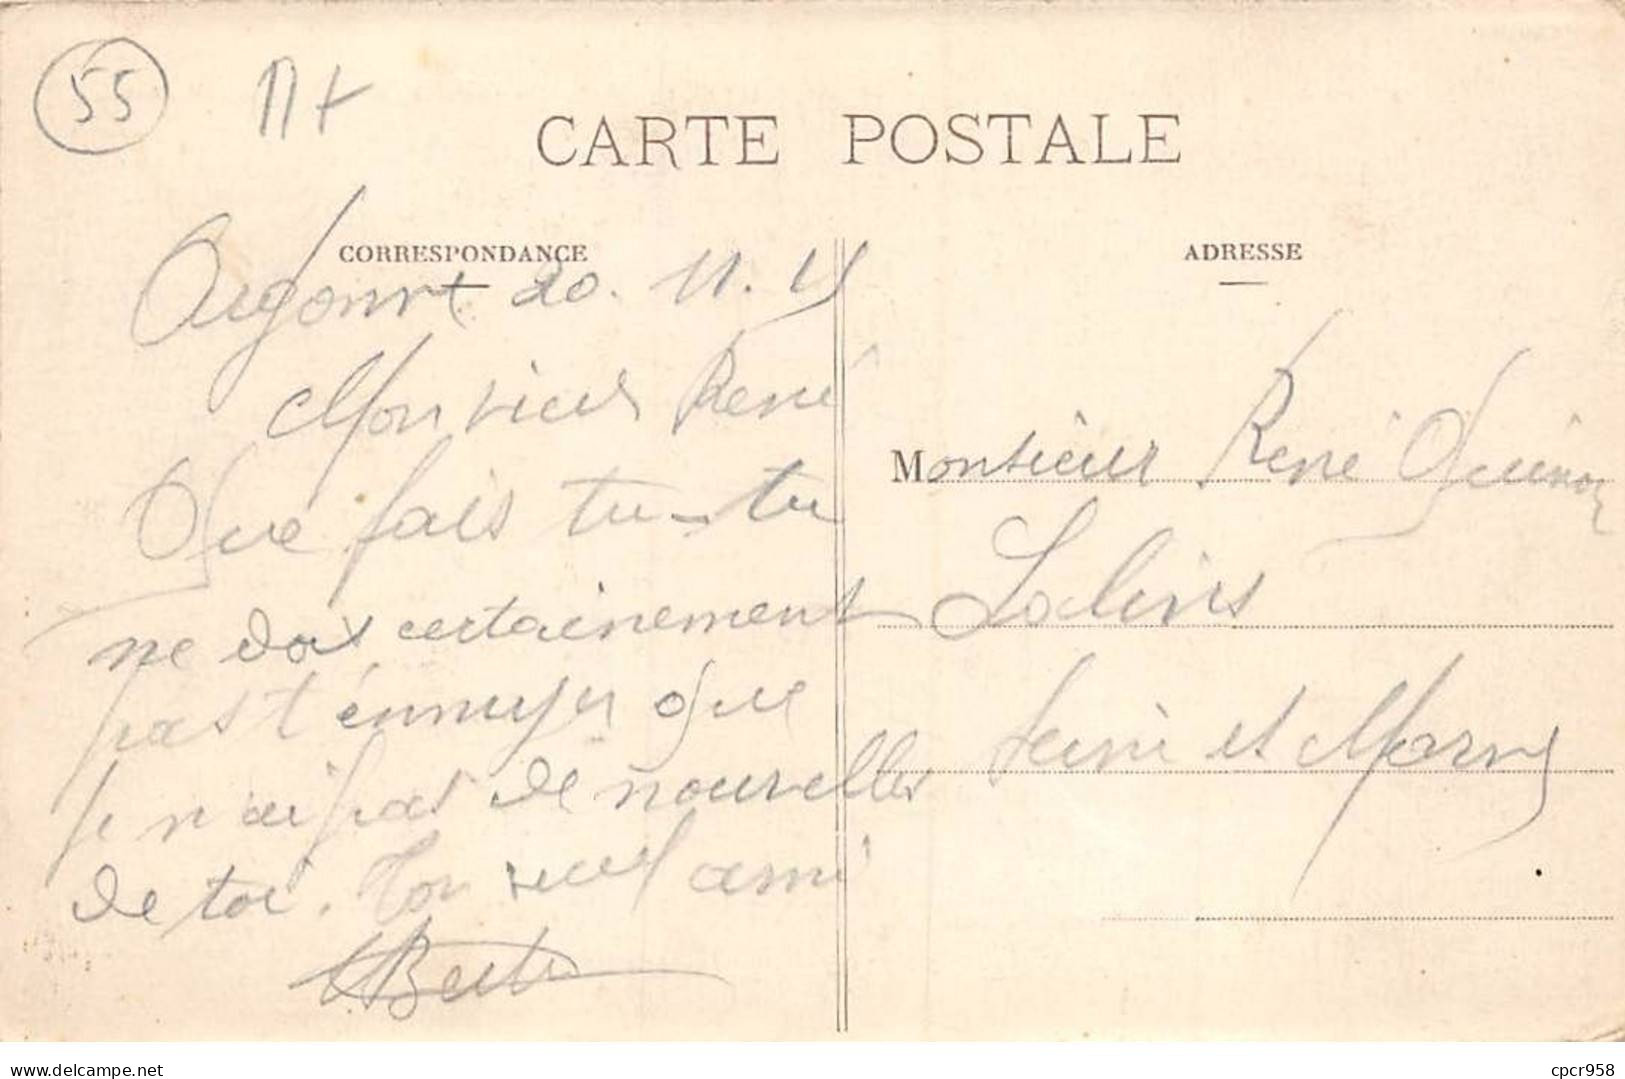 55
CARTE POSTALE
CORRESPONDANCE
20. 11. 15
Mon vieux René
Que fais tu - tu
ne dois certainement
pas t'ennuyer que
je n'ai pas de nouvelles
de toi. Ton vieil ami
ADRESSE
Monsieur René
Salins
Seine et Marne
cpcr958